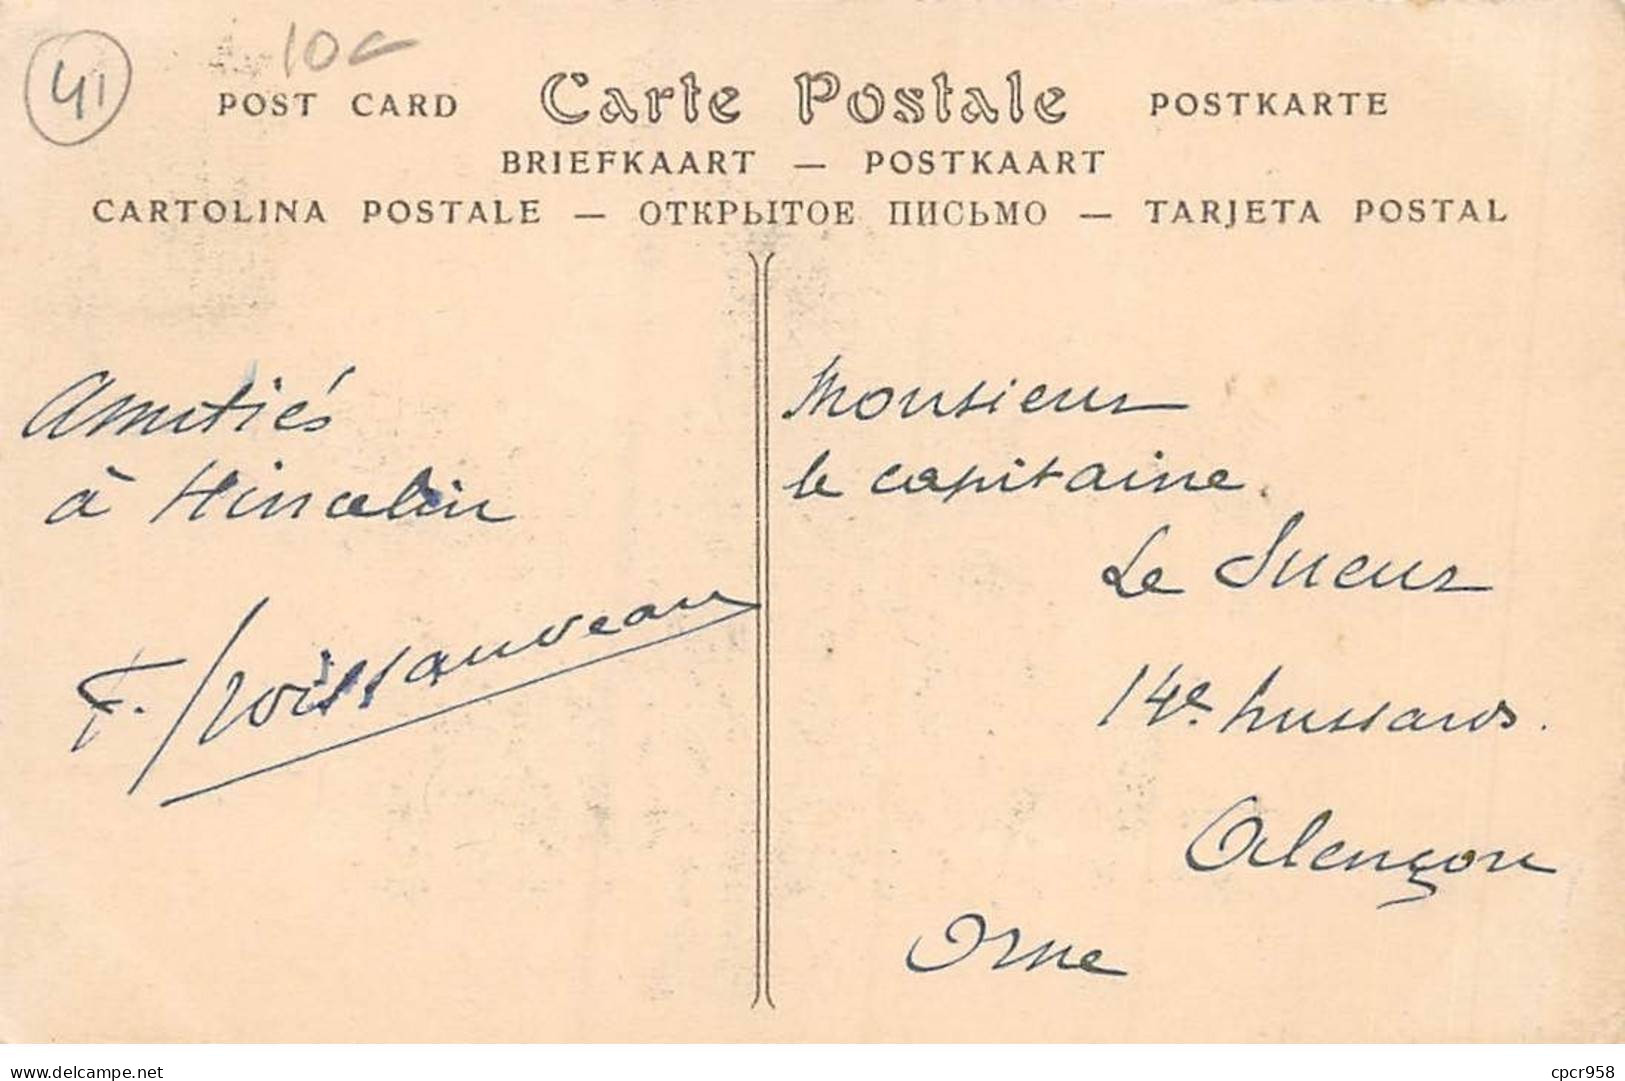 41
10c
POST CARD Carte Postale POSTKARTE
BRIEFKAART — POSTKAART
CARTOLINA POSTALE — ОТКРЫТОЕ ПИСЬМО — TARJETA POSTAL
Amitiés
à Hincelin
F. Froissauveau
Monsieur
le capitaine
Le Sueur
14e hussards.
Alençon
Orne
www.delcampe.net
cpcr958